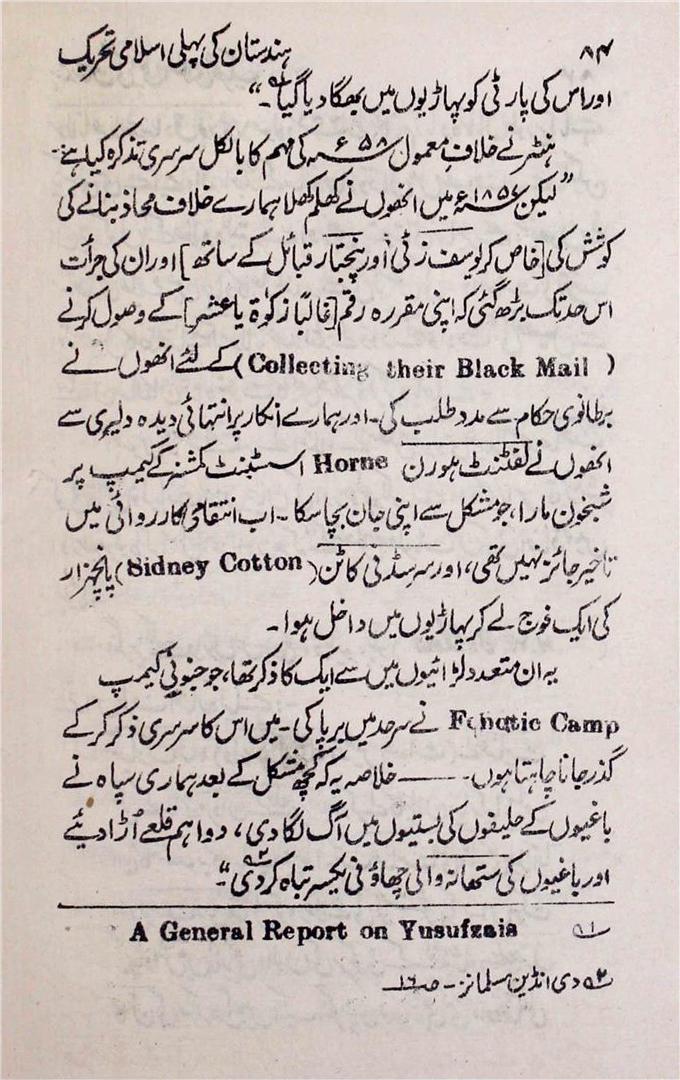 ۸۴ ہندستان کی پہلی اسلامی تحریک
اور اس کی پارٹی کو پہاڑیوں میں بھگا دیا گیا۹۱۔“
ہنٹر نے خلافِ معمول ۵۸ء کی مہم کا بالکل سرسری تذکرہ کیا ہے۔
”لیکن ۱۸۵۷ء میں انھوں نے کھلم کھلا ہمارے خلاف محاذ بنانے کی
کوشش کی [خاص کر یوسف زئی اور پنجتار قبائل کے ساتھ] اور ان کی جرأت
اس حد تک بڑھ گئی کہ اپنی مقررہ رقم [غالباً زکوٰۃ یا عشر] کے وصول کرنے
(Collecting their Black Mail) کے لئے انھوں نے
برطانوی حکام سے مدد طلب کی۔ اور ہمارے انکار پر انتہائی دیدہ دلیری سے
انھوں نے لفٹننٹ ہورن Horne اسسٹنٹ کمشنر کے کیمپ پر
شبخون مارا، جو مشکل سے اپنی جان بچا سکا۔ اب انتقامی کارروائی میں
تاخیر جائز نہیں تھی، اور سر سڈنی کاٹن (Sidney Cotton) پانچہزار
کی ایک فوج لے کر پہاڑیوں میں داخل ہوا۔
یہ ان متعدد لڑائیوں میں سے ایک کا ذکر تھا، جو جنونی کیمپ
Fanatic Camp نے سرحد میں برپا کی۔ میں اس کا سرسری ذکر کر کے
گذر جانا چاہتا ہوں۔ —— خلاصہ یہ کہ کچھ مشکل کے بعد ہماری سپاہ نے
باغیوں کے حلیفوں کی بستیوں میں آگ لگا دی، دو اہم قلعے اُڑا دیئے
اور باغیوں کی ستھانہ والی چھاؤنی یکسر تباہ کر دی۹۲۔“
۹۱ A General Report on Yusufzais
۹۲ دی انڈین مسلمانز۔ صـ۱۶